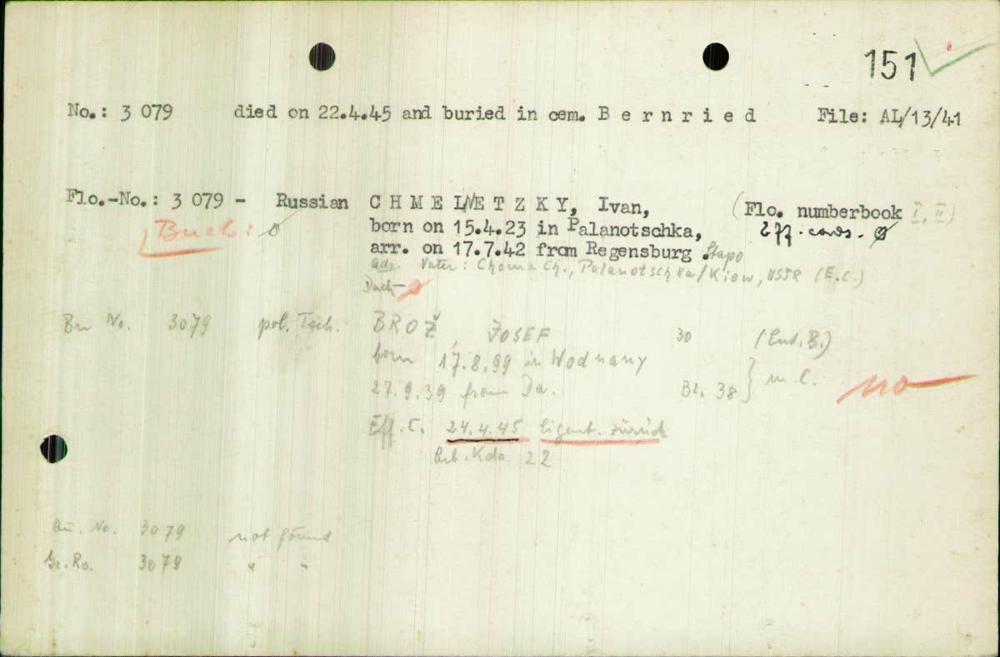 151
No.: 3 079 died on 22.4.45 and buried in cem. B e r n r i e d File: AL/13/41
Flo.-No.: 3 079 - Russian C H M E L N E T Z K Y, Ivan, (Flo. numberbook I, II)
Buch: 0 born on 15.4.23 in Palanotschka, Eff. cards. 0
arr. on 17.7.42 from Regensburg Stapo
Vater: Choma Ch., Palanotschka/Kiew, USSR (E.C.)
Dach- 0
Bu No. 3079 pol. Tsch. BROŽ, JOSEF 30
born 17.8.99 in Wodnany } m.c. no
27.9.39 from Da. Bl. 38
Eff. C. 24.4.45 Eigent. zurück
Arb. Kdo. 22
No. 3079 not found
Gr. Ro. 3079 " "